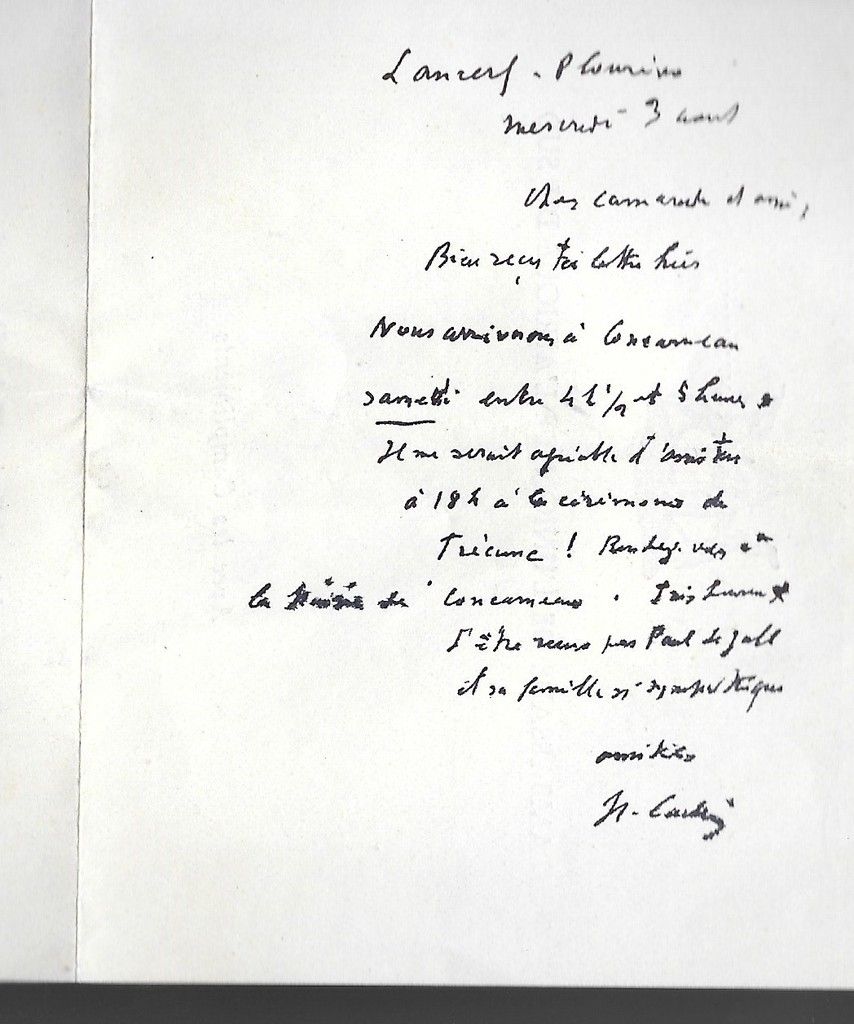 Lancerf. Plourivo
mercredi 3 aout
cher camarade et ami,
Bien reçu ta lettre hier
Nous arriverons à Concarneau
samedi entre 4 h 1/2 et 5 heures
Il me serait agréable d'assister
à 18 h à la cérémonie de
Trécunc ! Rendez-vous à
la Mairie de Concarneau. Très heureux
d'être reçus par Paul le Gall
et sa famille si sympathique
amitiés